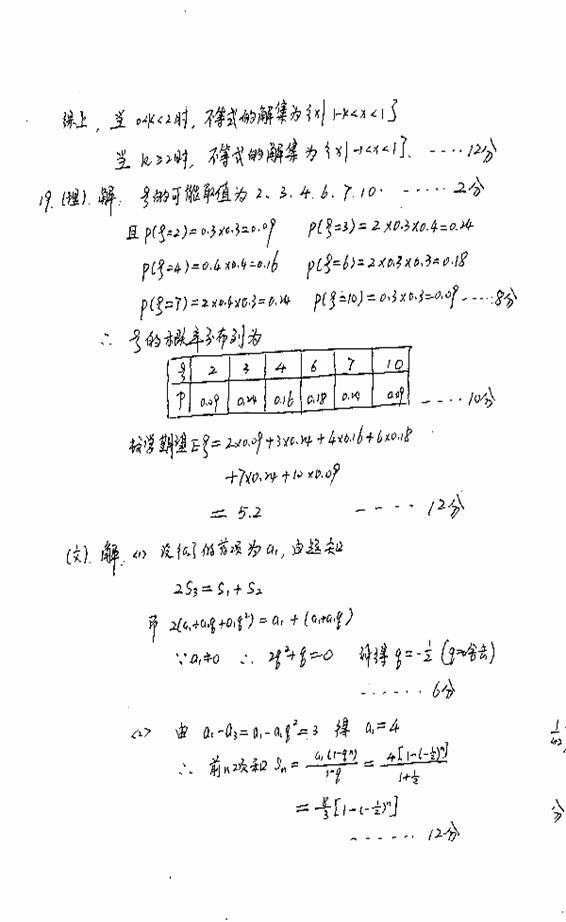 综上，当 0<k<2时，不等式的解集为{x|1-k<x<1}
当 k≥2时，不等式的解集为{x|-1<x<1}. ····12分
19.(理).解: ξ的可能取值为 2、3、4、6、7、10. ·····2分
且P(ξ=2)=0.3×0.3=0.09 P(ξ=3)=2×0.3×0.4=0.24
P(ξ=4)=0.4×0.4=0.16 P(ξ=6)=2×0.3×0.3=0.18
P(ξ=7)=2×0.4×0.3=0.24 P(ξ=10)=0.3×0.3=0.09 ·····8分
∴ ξ的概率分布列为
ξ 2 3 4 6 7 10
P 0.09 0.24 0.16 0.18 0.24 0.09 ····10分
数学期望Eξ=2×0.09+3×0.24+4×0.16+6×0.18
+7×0.24+10×0.09
=5.2 ····12分
(文).解:<1> 设{an}的首项为a1,由题知
2S3=S1+S2
即 2(a1+a1q+a1q²)=a1+(a1+a1q)
∵a1≠0 ∴ 2q²+q=0 解得 q=-1/2 (q=0舍去)
······6分
<2> 由 a1-a3=a1-a1q²=3 得 a1=4
∴ 前n项和 Sn=a1(1-qⁿ)/1-q=4[1-(-1/2)ⁿ]/1+1/2
=8/3[1-(-1/2)ⁿ]
分
······12分